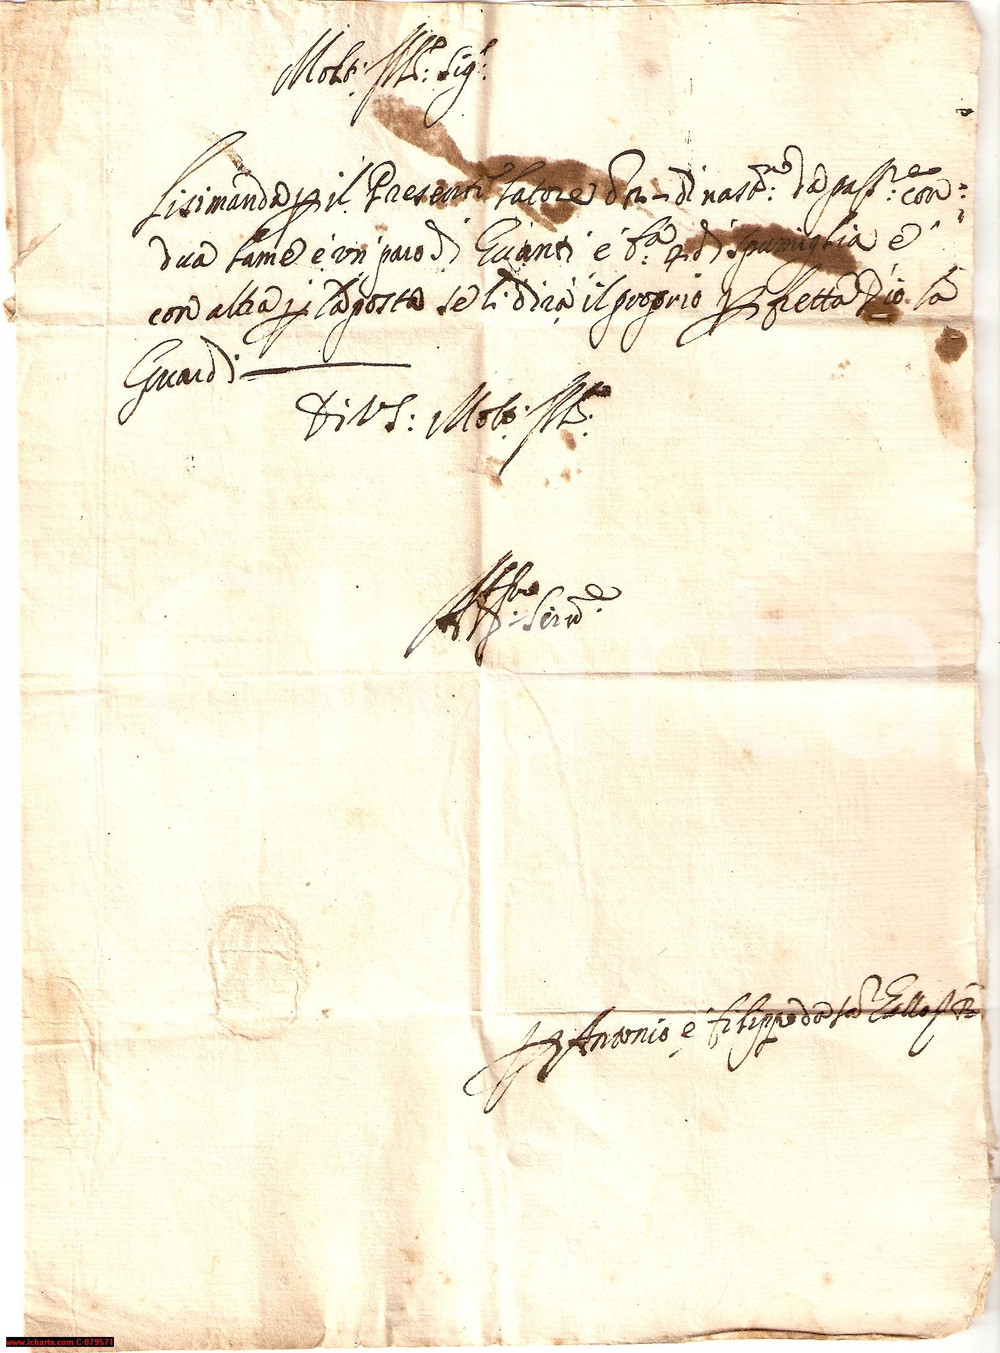 Molt: Ill:e Sig:e
Lisimanda p il Presente Latore di nast:ro da pass:re con=
dua lame è un paro di Guanti è di spumiglia è
con altra p la posta se li dirà il proprio p fretta Dio la
Guardi
Di V S: Molt: Ill:e
Aff:mo Ser:e
Antonio è Filippo
www.icharta.com C-079571